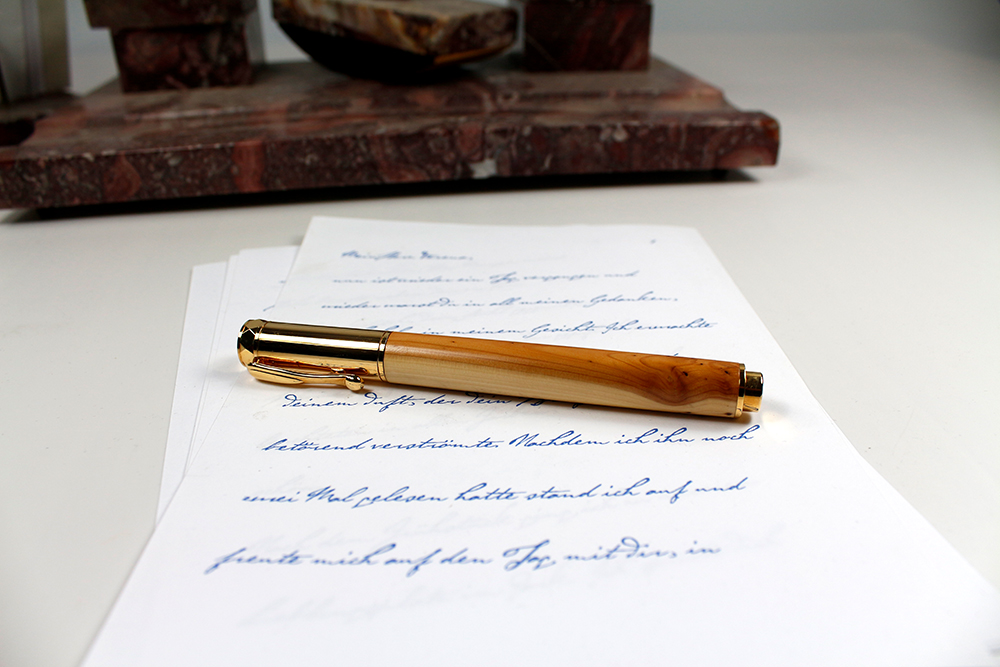 nun ist wieder ein Tag vergangen und
wieder warst Du in all meinen Gedanken,
in meinem Gesicht. Ich erwachte
deinem Duft, der dein
betörend verströmte. Nachdem ich ihn noch
zwei Mal gelesen hatte stand ich auf und
freute mich auf den Tag mit dir, in